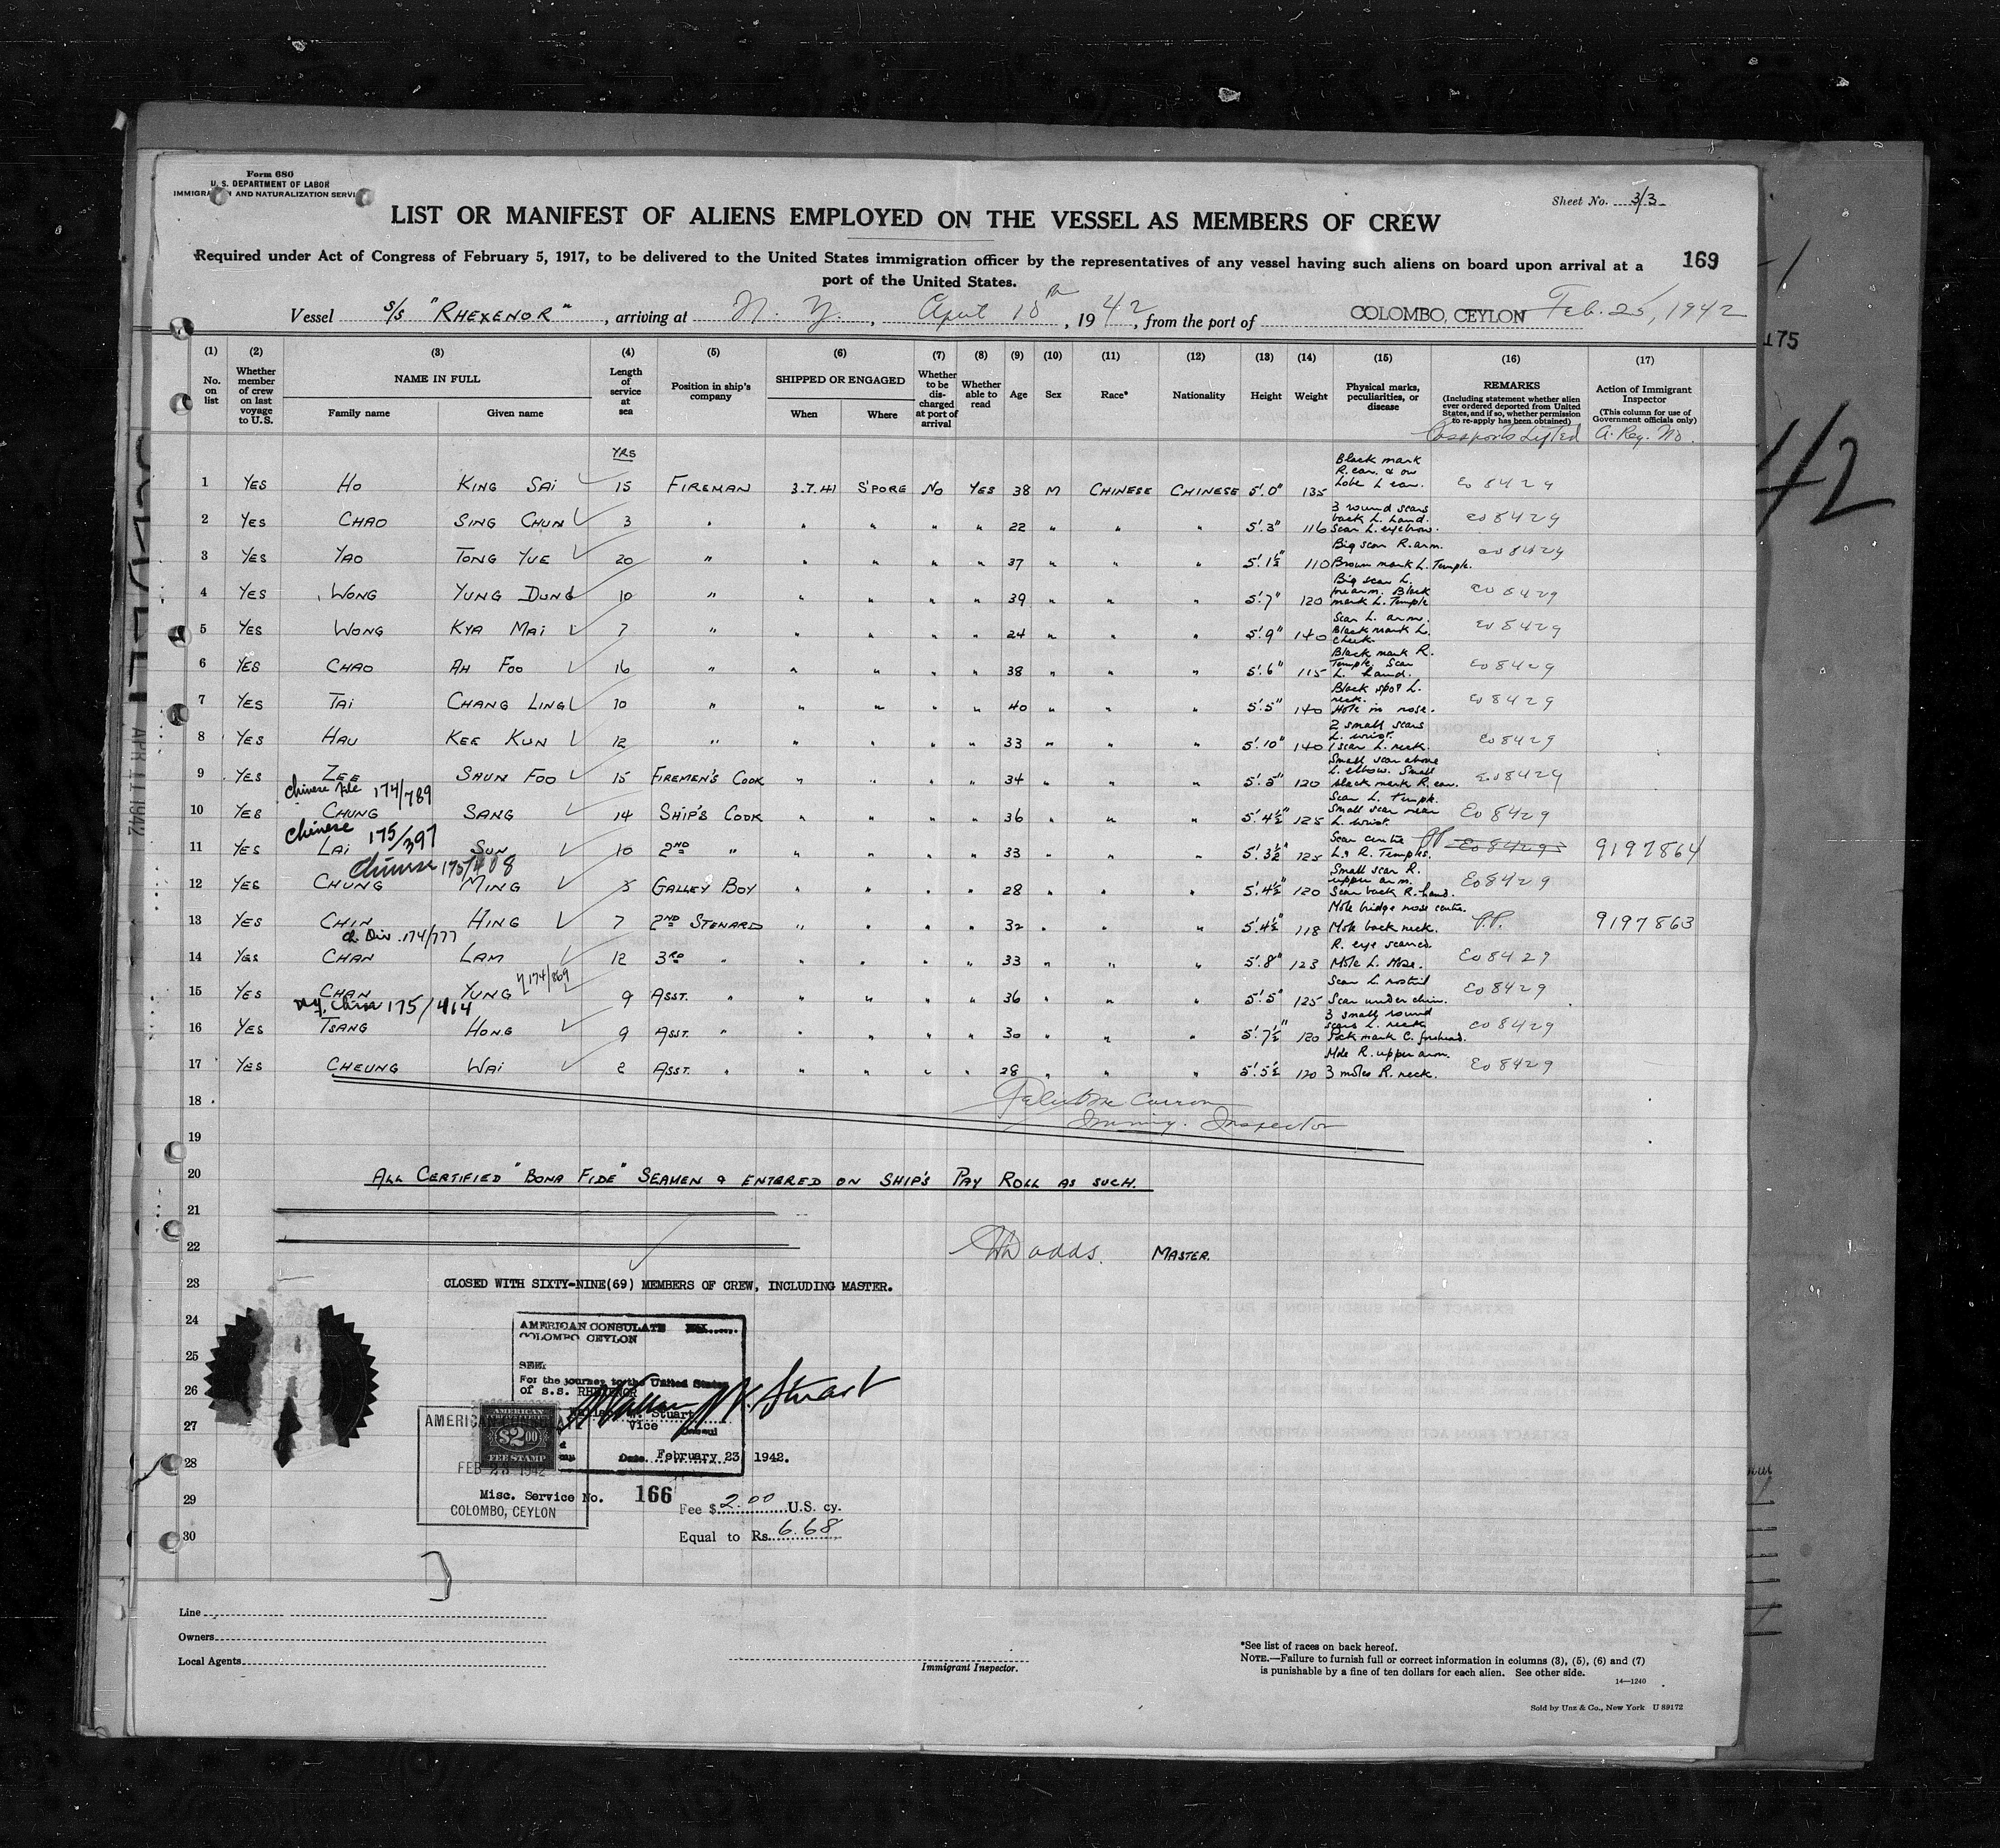 Form 680
U. S. DEPARTMENT OF LABOR
IMMIGRATION AND NATURALIZATION SERVICE
Sheet No. 3/3
LIST OR MANIFEST OF ALIENS EMPLOYED ON THE VESSEL AS MEMBERS OF CREW
Required under Act of Congress of February 5, 1917, to be delivered to the United States immigration officer by the representatives of any vessel having such aliens on board upon arrival at a
port of the United States.
169
Vessel S/S "RHEXENOR", arriving at N. Y., April 10th, 1942, from the port of COLOMBO, CEYLON Feb. 25, 1942
175
(1) (2) (3) (4) (5) (6) (7) (8) (9) (10) (11) (12) (13) (14) (15) (16) (17)
No. on list
Whether member of crew on last voyage to U.S.
NAME IN FULL
Family name
Given name
Length of service at sea
Position in ship's company
SHIPPED OR ENGAGED
When
Where
Whether to be discharged at port of arrival
Whether able to read
Age
Sex
Race*
Nationality
Height
Weight
Physical marks, peculiarities, or disease
REMARKS
(Including statement whether alien ever ordered deported from United States, and if so, whether permission to re-apply has been obtained)
Passports Lifted
Action of Immigrant Inspector
(This column for use of Government officials only)
A. Reg. No.
YRS
1 YES HO KING SAI 15 FIREMAN 3.7.41 S'PORE NO YES 38 M CHINESE CHINESE 5'.0" 135 Black mark R. ear. & on Lobe L ear. Eo 8429
2 YES CHAO SING CHUN 3 " " " " " 22 " " " 5'.3" 116 3 round scars back L. hand. Scar L. eyebrow. Eo 8429
3 YES YAO TONG YUE 20 " " " " " 37 " " " 5'.1½ 110 Big scar R. arm. Brown mark L. Temple. Eo 8429
4 YES WONG YUNG DUNG 10 " " " " " 39 " " " 5'.7" 120 Big scar L. forearm. Black mark L. Temple Eo 8429
5 YES WONG KYA MAI 7 " " " " " 24 " " " 5'.9" 140 Scar L. arm. Black mark L. cheek. Eo 8429
6 YES CHAO AH FOO 16 " " " " " 38 " " " 5'.6" 115 Black mark R. Temple. Scar L. hand. Eo 8429
7 YES TAI CHANG LING 10 " " " " " 40 " " " 5'.5" 140 Black spot L. neck. Mole in nose. Eo 8429
8 YES HAU KEE KUN 12 " " " " " 33 " " " 5'.10" 140 2 small scars L. wrist. 1 scar L. neck. Eo 8429
9 YES ZEE SAUN FOO 15 FIREMEN'S COOK " " " " 34 " " " 5'.5" 120 Small scar above L. elbow. Small black mark R. ear. Eo 8429
Chinese File 174/789
10 YES CHUNG SANG 14 SHIP'S COOK " " " " 36 " " " 5'.4½" 125 Scar L. Temple. Small scar near L. wrist. Eo 8429
Chinese 175/397
11 YES LAI SUN 10 2ND " " " " " 33 " " " 5'.3½" 125 Scar centre L. & R. Temples. PP Eo 8429 9197864
Chinese 175/408
12 YES CHUNG MING 3 GALLEY BOY " " " " 28 " " " 5'.4½" 120 Small scar R. upper arm. Scar back R. hand. Eo 8429
13 YES CHIN HING 7 2ND STEWARD " " " " 32 " " " 5'.4½" 118 Mole bridge nose centre. Mole back neck. P.P. 9197863
Ch. Div. 174/777
14 YES CHAN LAM 12 3RD " " " " " 33 " " " 5'.8" 123 R. eye scarred Mole L. Nose. Eo 8429
174/869
15 YES CHAN YUNG 9 ASST. " " " " " 36 " " " 5'.5" 125 Scar L. nostril Scar under chin. Eo 8429
N.Y. Chin 175/414
16 YES TSANG HONG 9 ASST. " " " " 30 " " " 5'.7½" 120 3 small round scars L. neck Pock mark C. forehead. Eo 8429
17 YES CHEUNG WAI 2 ASST. " " " " " 28 " " " 5'.5½ 120 Mole R. upper arm. 3 moles R. neck. Eo 8429
18
Immig. Inspector
19
20 ALL CERTIFIED "BONA FIDE" SEAMEN & ENTERED ON SHIP'S PAY ROLL AS SUCH.
21
22 Dodds. MASTER.
23 CLOSED WITH SIXTY-NINE(69) MEMBERS OF CREW, INCLUDING MASTER.
24
25
26
27
28
29
30
AMERICAN CONSULATE
COLOMBO CEYLON
SEEN
For the journey to the United States
of S.S. RHEXENOR
Stuart
Vice Consul
Date February 23, 1942.
AMERICAN CONSULATE
FEB 23 1942
COLOMBO, CEYLON
AMERICAN
$2.00
FEE STAMP
Misc. Service No. 166
Fee $ 2.00 U.S. cy.
Equal to Rs. 6.68
APR 11 1942
42
Line
Owners
Local Agents
Immigrant Inspector.
*See list of races on back hereof.
NOTE.—Failure to furnish full or correct information in columns (3), (5), (6) and (7)
is punishable by a fine of ten dollars for each alien. See other side.
14—1240
Sold by Unz & Co., New York U 89172